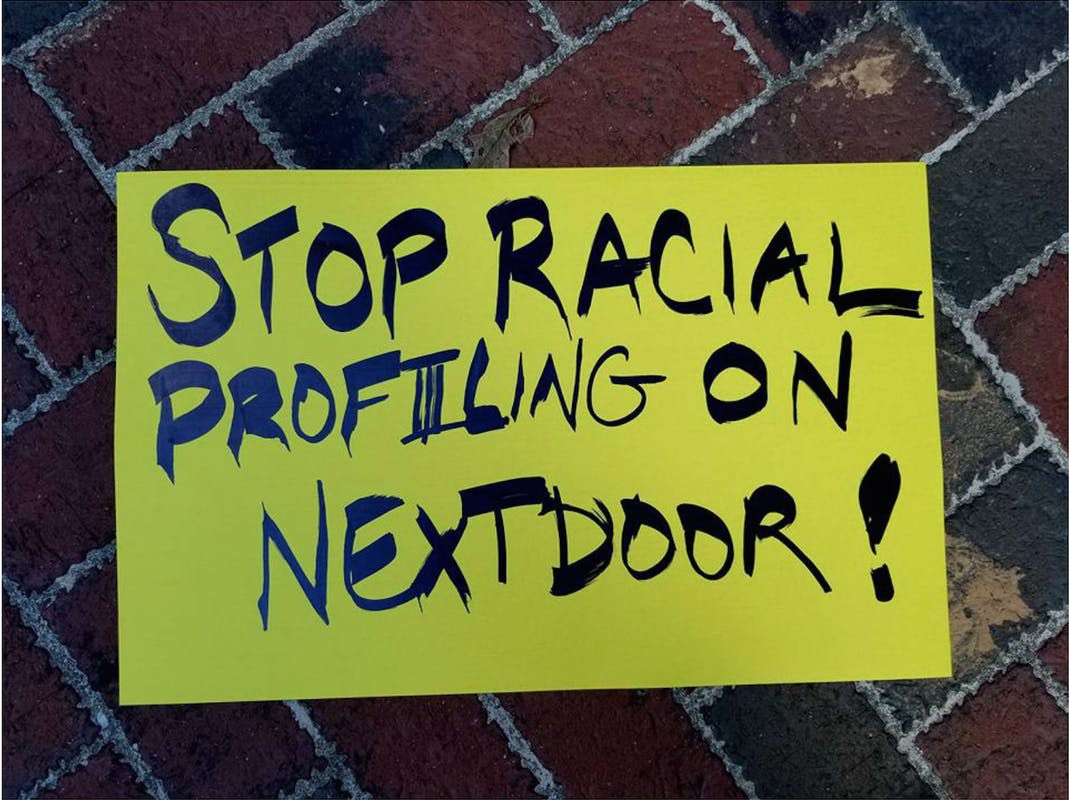 STOP RACIAL
PROFILING ON
NEXTDOOR!